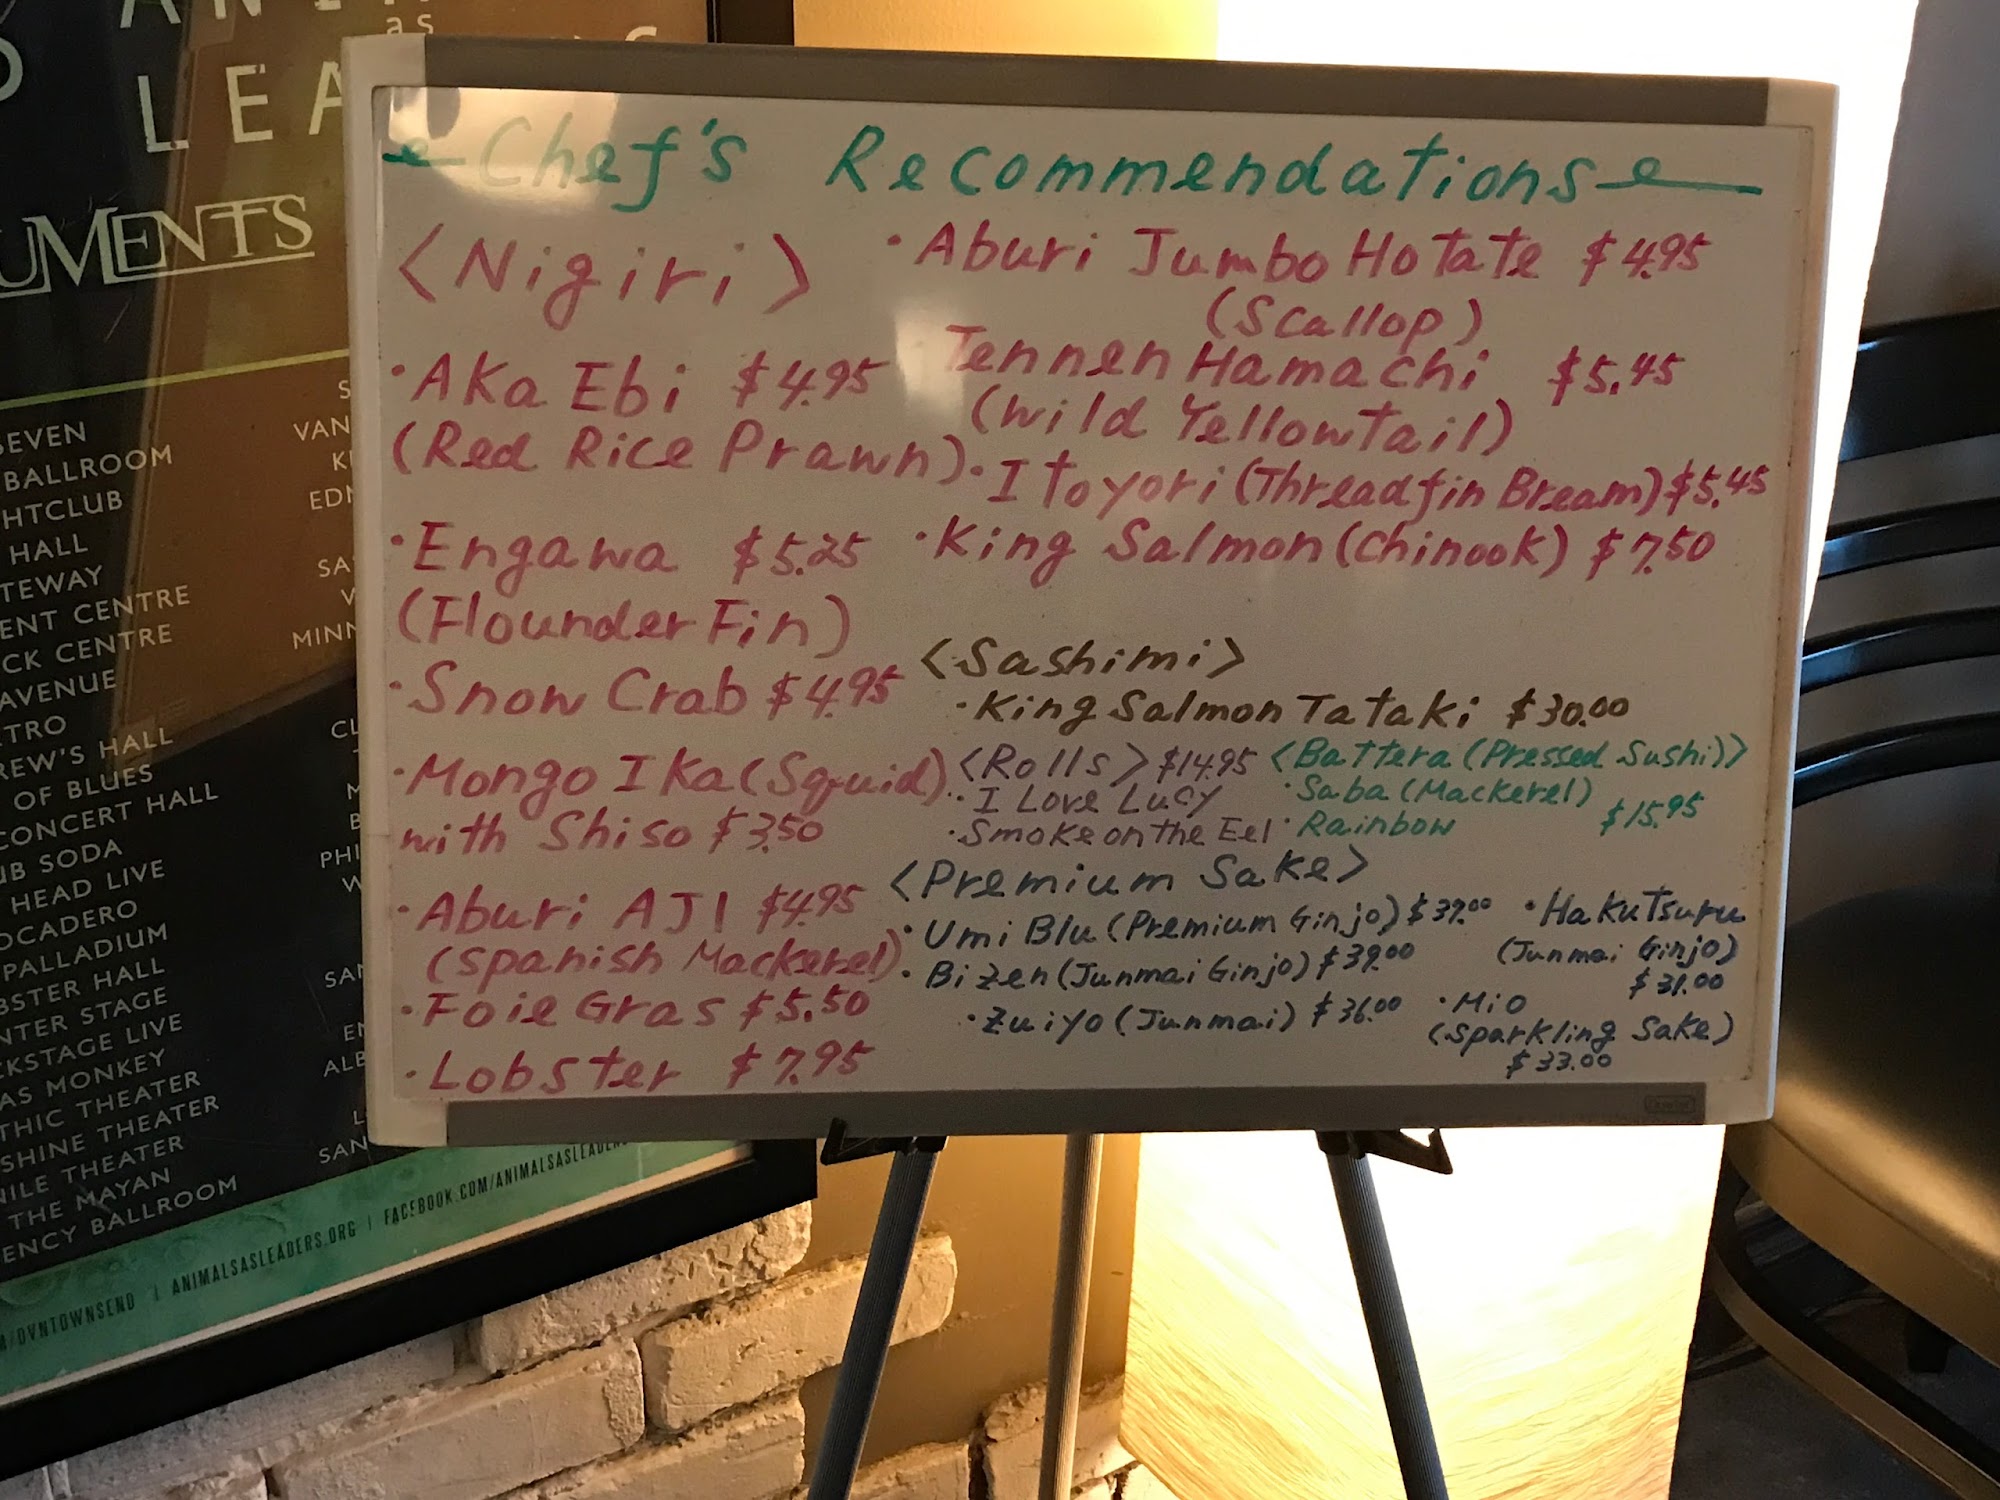 as
LEA
UMENTS
SEVEN
BALLROOM
VAN
HTCLUB
HALL
EDM
TEWAY
ENT CENTRE
CK CENTRE
MINN
AVENUE
TRO
REW'S HALL
OF BLUES
CONCERT HALL
UB SODA
HEAD LIVE
OCADERO
PALLADIUM
BSTER HALL
NTER STAGE
CKSTAGE LIVE
AS MONKEY
THIC THEATER
SHINE THEATER
NILE THEATER
THE MAYAN
ENCY BALLROOM
/DVNTOWNSEND | ANIMALSASLEADERS.ORG | FACEBOOK.COM/ANIMALSASLEADERS
Chef's Recommendations
<Nigiri>
· Aka Ebi $4.95
(Red Rice Prawn)
· Engawa $5.25
(Flounder Fin)
· Snow Crab $4.95
· Mongo Ika (Squid)
with Shiso $3.50
· Aburi AJI $4.95
(Spanish Mackerel)
· Foie Gras $5.50
· Lobster $7.95
· Aburi Jumbo Hotate $4.95
(Scallop)
Tennen Hamachi $5.45
(Wild Yellowtail)
· Itoyori (Threadfin Bream) $5.45
· King Salmon (Chinook) $7.50
<Sashimi>
· King Salmon Tataki $30.00
<Rolls> $14.95
· I Love Lucy
· Smoke on the Eel
<Battera (Pressed Sushi)>
· Saba (Mackerel)
· Rainbow $15.95
<Premium Sake>
· Umi Blu (Premium Ginjo) $39.00
· Bizen (Junmai Ginjo) $39.00
· Zuiyo (Junmai) $36.00
· Hakutsuru
(Junmai Ginjo)
$31.00
· Mio
(Sparkling Sake)
$33.00